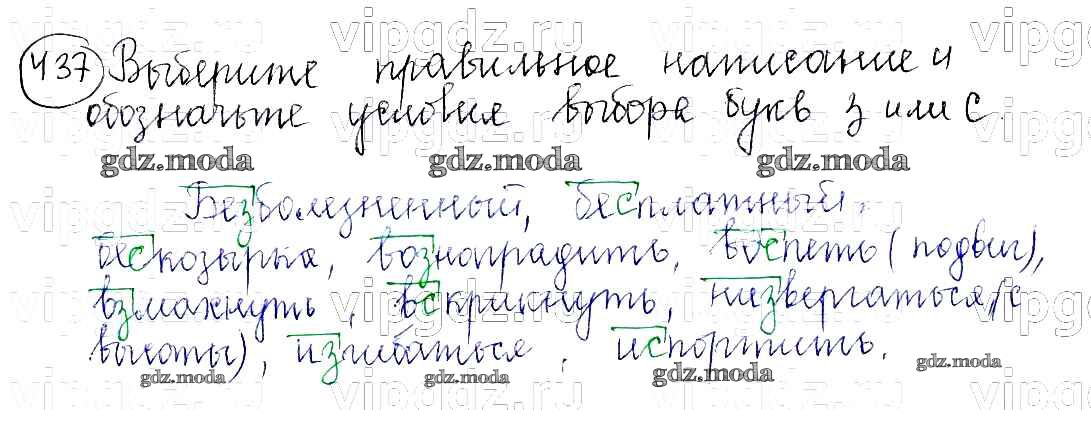 437 Выберите правильное написание и
обозначьте условия выбора букв з или с.
Безболезненный, бесплатный,
бескозырка, вознаградить, воспеть (подвиг),
взмахнуть, вскрикнуть, низвергаться (с
высоты), изгибаться, испортить.
gdz.moda gdz.moda gdz.moda
gdz.moda gdz.moda gdz.moda gdz.moda
vipgdz.ru vipgdz.ru vipgdz.ru vipgdz.ru